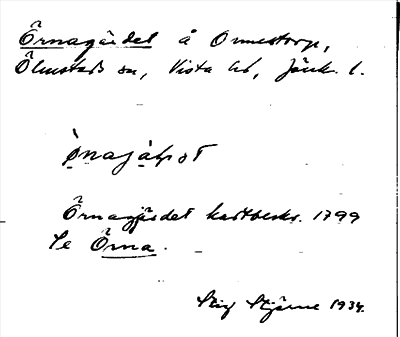 Örnagärdet å Ormestorp,
Ölmstads sn, Vista hd, Jönk. l.
Örnagärdet kartbeskr. 1799
Se Örna.
Stig Stjärne 1934.